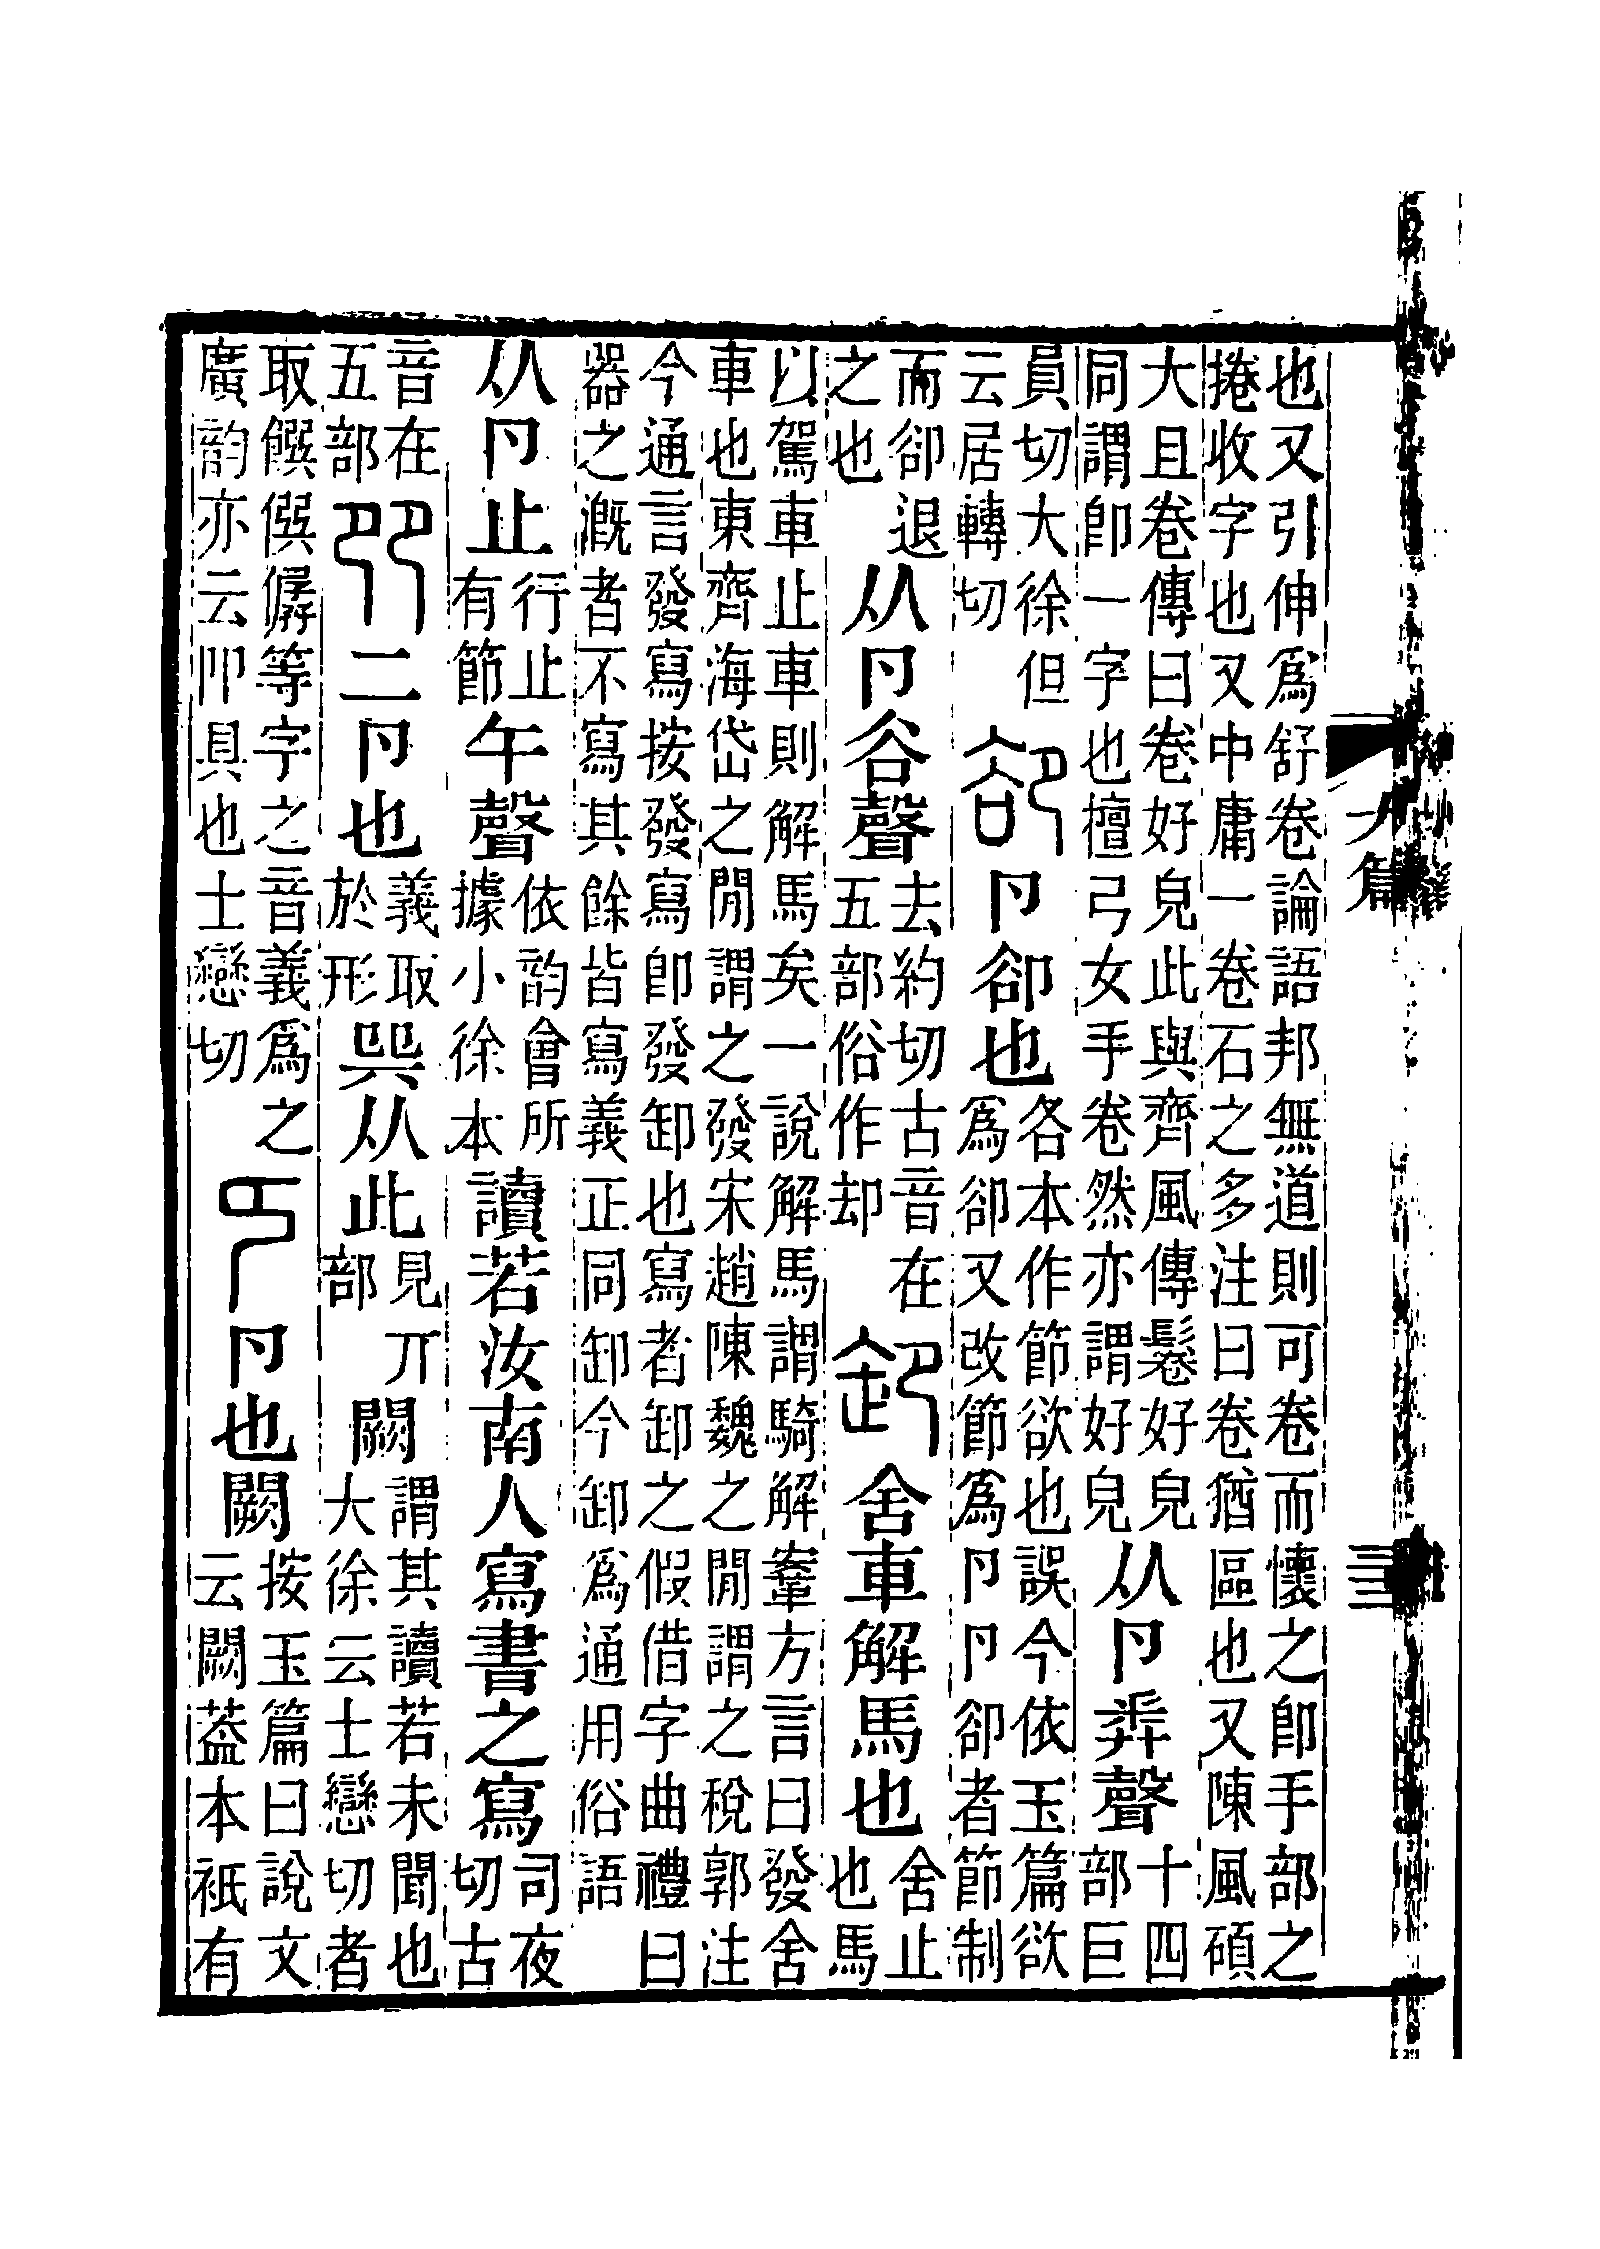 九篇
也又引伸爲舒卷論語邦無道則可卷而懷之卽手部之
捲收字也又中庸一卷石之多注曰卷猶區也又陳風碩
大且卷傳曰卷好皃此與齊風傳鬈好皃
同謂卽一字也檀弓女手卷然亦謂好皃
从卪𢍏聲
十四
部巨
員切大徐但
云居轉切
卻
卪卻也
各本作節欲也誤今依玉篇欲
爲卻又改節爲卪卪卻者節制
而卻退
之也
从卪谷聲
去約切古音在
五部俗作却
卸
舍車解馬也
舍止
也馬
以駕車止車則解馬矣一說解馬謂騎解鞌方言曰發舍
車也東齊海岱之閒謂之發宋趙陳魏之閒謂之稅郭注
今通言發寫按發寫卽發卸也寫者卸之假借字曲禮曰
器之漑者不寫其餘皆寫義正同卸今卸爲通用俗語
从卪止
行止
有節
午聲
依韵會所
據小徐本
讀若汝南人寫書之寫
司夜
切古
音在
五部
𠨎
二卪也
義取
於形
巺从此
見丌
部
闕
謂其讀若未聞也
大徐云士戀切者
取饌僎僝等字之音義爲之
廣韵亦云𠨎具也士戀切
𠨏
卪也闕
按玉篇曰說文
云闕葢本祇有